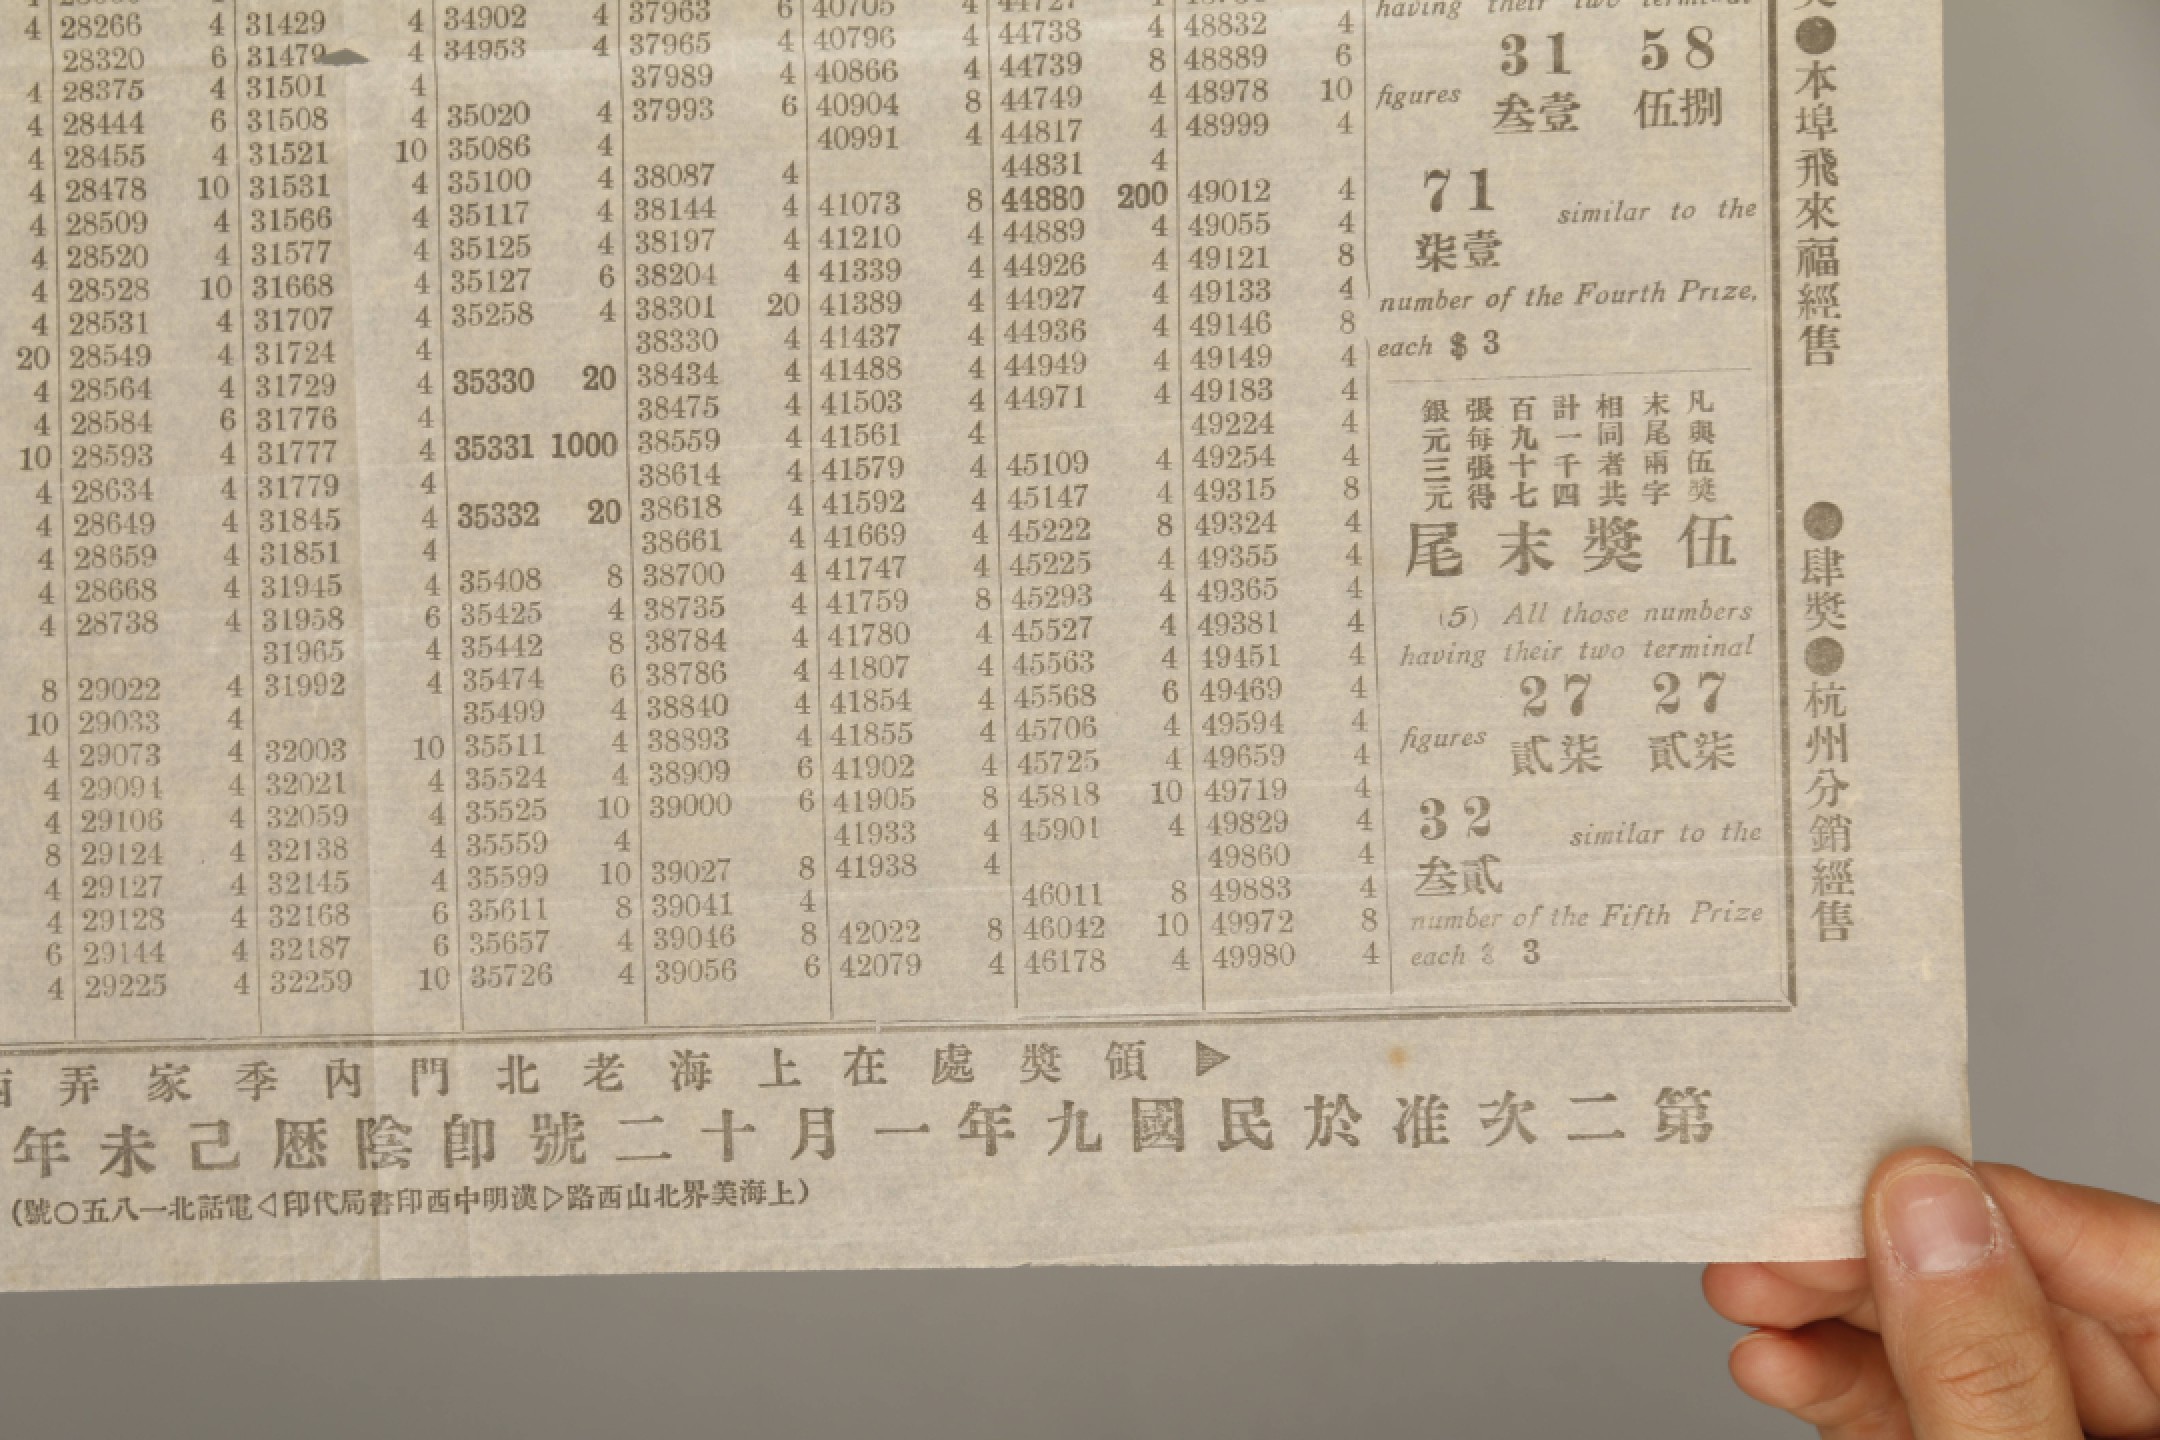 4
4
4
4
4
4
4
4
4
20
4
4
10
4
4
4
4
4
8
10
4
4
4
8
4
4
6
4
28266 4
28320 6
28375 4
28444 6
28455 4
28478 10
28509 4
28520 4
28528 10
28531 4
28549 4
28564 4
28584 6
28593 4
28634 4
28649 4
28659 4
28668 4
28738 4
29022 4
29033 4
29073 4
29094 4
29106 4
29124 4
29127 4
29128 4
29144 4
29225 4
31429 4
31479 4
31501 4
31508 4
31521 10
31531 4
31566 4
31577 4
31668 4
31707 4
31724 4
31729 4
31776 4
31777 4
31779 4
31845 4
31851 4
31945 4
31958 6
31965 4
31992 4
32003 10
32021 4
32059 4
32138 4
32145 4
32168 6
32187 6
32259 10
34902 4
34953 4
35020 4
35086 4
35100 4
35117 4
35125 4
35127 6
35258 4
35330 20
35331 1000
35332 20
35408 8
35425 4
35442 8
35474 6
35499 4
35511 4
35524 4
35525 10
35559 4
35599 10
35611 8
35657 4
35726 4
37963 6
37965 4
37989 4
37993 6
38087 4
38144 4
38197 4
38204 4
38301 20
38330 4
38434 4
38475 4
38559 4
38614 4
38618 4
38661 4
38700 4
38735 4
38784 4
38786 4
38840 4
38893 4
38909 6
39000 6
39027 8
39041 4
39046 8
39056 6
40705 4
40796 4
40866 4
40904 8
40991 4
41073 8
41210 4
41339 4
41389 4
41437 4
41488 4
41503 4
41561 4
41579 4
41592 4
41669 4
41747 4
41759 8
41780 4
41807 4
41854 4
41855 4
41902 4
41905 8
41933 4
41938 4
42022 8
42079 4
44738 4
44739 8
44749 4
44817 4
44831 4
44880 200
44889 4
44926 4
44927 4
44936 4
44949 4
44971 4
45109 4
45147 4
45222 8
45225 4
45293 4
45527 4
45563 4
45568 6
45706 4
45725 4
45818 10
45901 4
46011 8
46042 10
46178 4
48832 4
48889 6
48978 10
48999 4
49012 4
49055 4
49121 8
49133 4
49146 8
49149 4
49183 4
49224 4
49254 4
49315 8
49324 4
49355 4
49365 4
49381 4
49451 4
49469 4
49594 4
49659 4
49719 4
49829 4
49860 4
49883 4
49972 8
49980 4
having their two terminal
figures 31 58
叁壹 伍捌
71 similar to the
柒壹
number of the Fourth Prize,
each $ 3
凡與伍獎
末尾兩字
相同者共
計一千四
百九十七
張每張得
銀元三元
伍獎末尾
(5) All those numbers
having their two terminal
figures 27 27
貳柒 貳柒
32 similar to the
叁貳
number of the Fifth Prize
each $ 3
●本埠飛來福經售
●肆獎●杭州分銷經售
▶領獎處在上海老北門內季家弄西
第二次准於民國九年一月十二號卽陰歷己未年
(上海美界北山西路▷漢明中西印書局代印◁電話北一八五〇號)